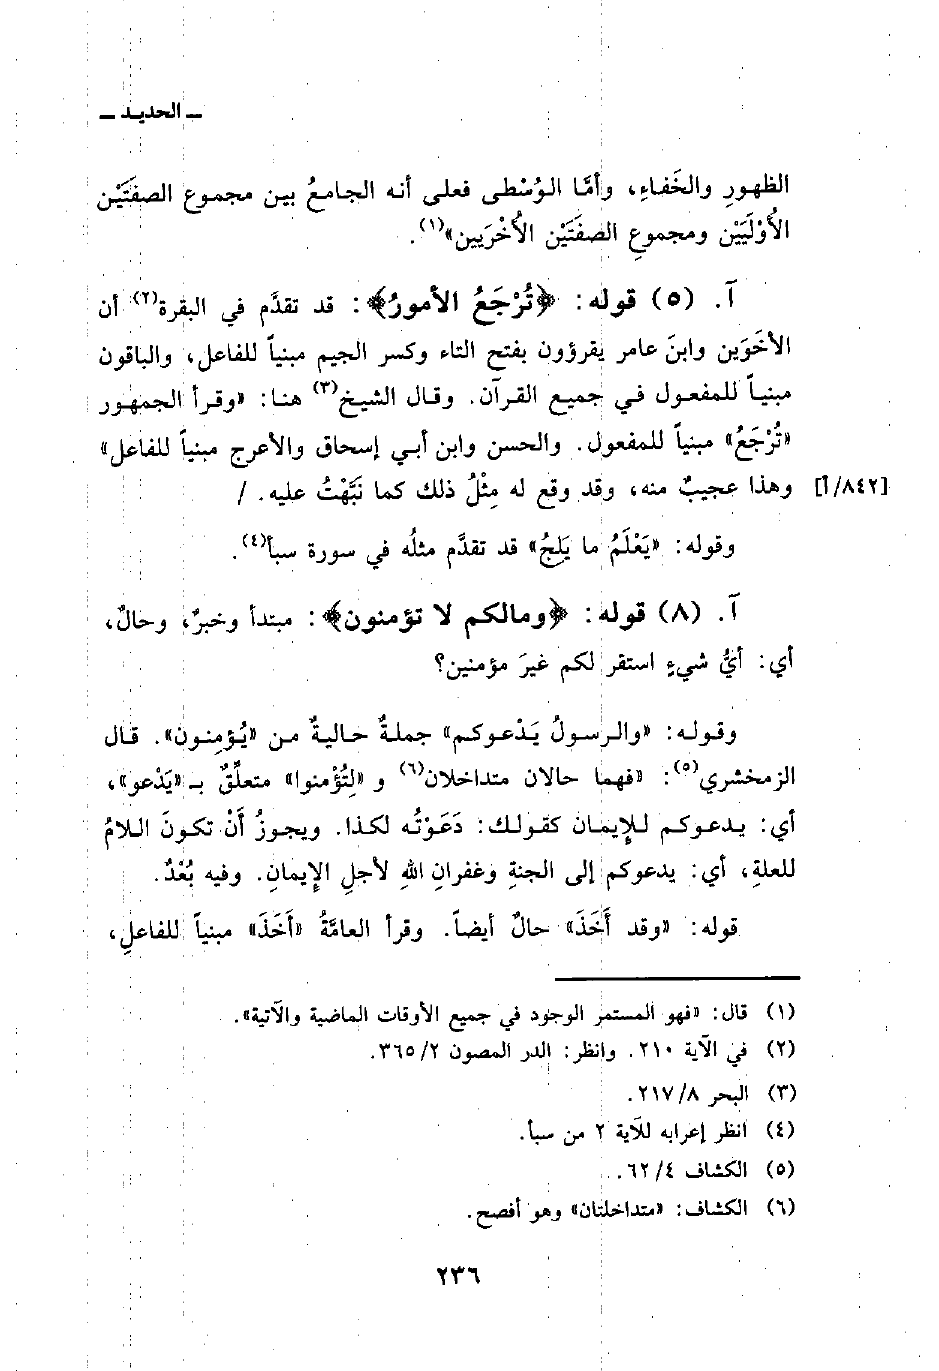 ــ الحديد ــ
الظهورِ والخَفاءِ، وأمَّا الوُسْطى فعلى أنه الجامعُ بين مجموع الصفتَيْن
الأُوْلَيَيْن ومجموعِ الصفتَيْن الأُخْرَيين»(١).
آ. (٥) قوله: ﴿تُرْجَعُ الأمورُ﴾: قد تقدَّم في البقرة(٢) أن
الأخَوَين وابنَ عامر يقرؤون بفتح التاء وكسر الجيم مبنياً للفاعل، والباقون
مبنيـاً للمفعول في جميع القرآن. وقال الشيخ(٣) هنا: «وقرأ الجمهور
«تُرْجَعُ» مبنياً للمفعول. والحسن وابن أبي إسحاق والأعرج مبنياً للفاعل»
[٨٤٢/أ] وهذا عجيبٌ منه، وقد وقع له مِثْلُ ذلك كما نَبَّهْتُ عليه. /
وقوله: «يَعْلَمُ ما يَلِجُ» قد تقدَّم مثلُه في سورة سبأ(٤).
آ. (٨) قوله: ﴿ومالكم لا تؤمنون﴾: مبتدأ وخبرٌ، وحالٌ،
أي: أيُّ شيءٍ استقر لكم غيرَ مؤمنين؟
وقوله: «والرسولُ يَدْعوكم» جملةٌ حاليةٌ من «يُؤمِنون». قال
الزمخشري(٥): «فهما حالان متداخلان(٦) و «لِتُؤْمنوا» متعلِّقٌ بـ «يَدْعو»،
أي: يدعوكم للإِيمان كقولك: دَعَوْتُه لكذا. ويجوزُ أَنْ تكونَ اللامُ
للعلةِ، أي: يدعوكم إلى الجنةِ وغفرانِ اللهِ لأجلِ الإِيمانِ. وفيه بُعْدٌ.
قوله: «وقد أَخَذَ» حالٌ أيضاً. وقرأ العامَّةُ «أَخَذَ» مبنياً للفاعلِ،
(١) قال: «فهو المستمر الوجود في جميع الأوقات الماضية والآتية».
(٢) في الآية ٢١٠. وانظر: الدر المصون ٣٦٥/٢.
(٣) البحر ٢١٧/٨.
(٤) انظر إعرابه للآية ٢ من سبأ.
(٥) الكشاف ٦٢/٤.
(٦) الكشاف: «متداخلتان» وهو أفصح.
٢٣٦